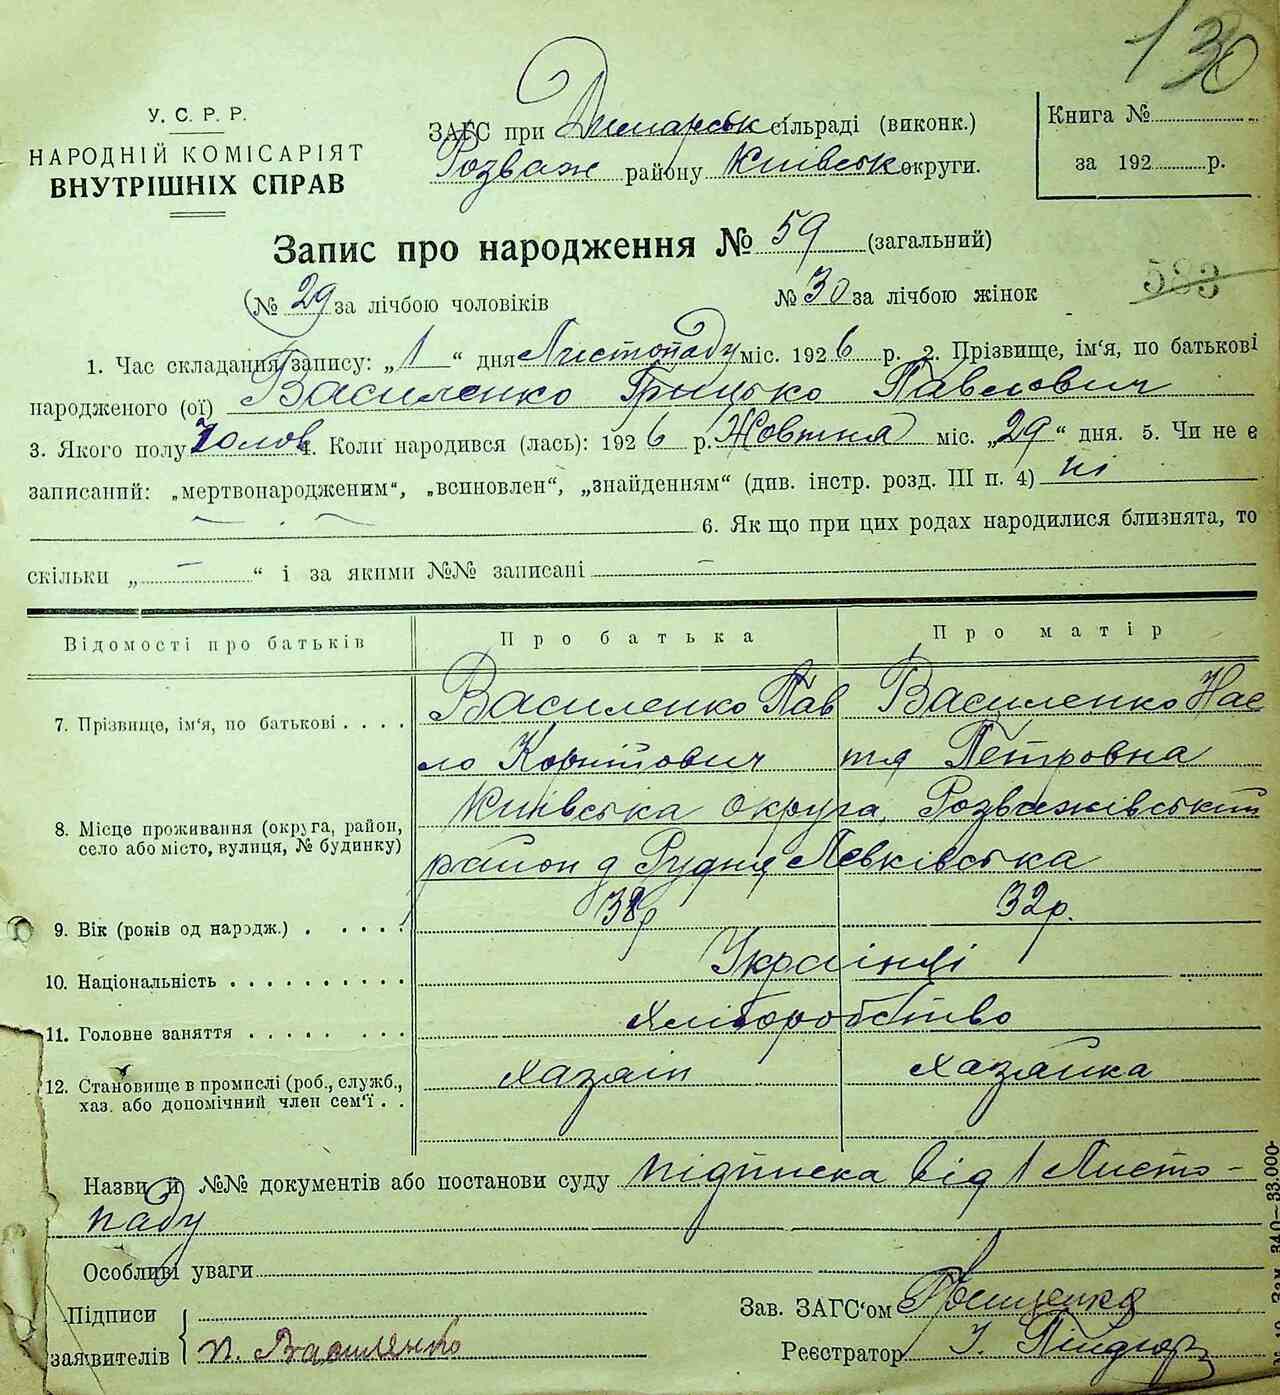 130
У. С. Р. Р.
НАРОДНІЙ КОМІСАРІЯТ
ВНУТРІШНІХ СПРАВ
ЗАГС при Димарськ сільраді (виконк.)
Розваж району Київськ округи.
Книга №
за 192 р.
Запис про народження № 59 (загальний)
(№ 29 за лічбою чоловіків № 30 за лічбою жінок
583
1. Час складання запису: „1“ дня Листопаду міс. 1926 р. 2. Прізвище, ім'я, по батькові
народженого (ої) Василенко Грицько Павлович
3. Якого полу Чолов 4. Коли народився (лась): 1926 р. Жовтня міс. „29“ дня. 5. Чи не є
записаний: „мертвонародженим“, „всиновлен“, „знайденням“ (див. інстр. розд. III п. 4) ні
6. Як що при цих родах народилися близнята, то
скільки „ – “ і за якими №№ записані –
Відомості про батьків Про батька Про матір
7. Прізвище, ім'я, по батькові . . . . Василенко Пав Василенко Нас
ло Корнійович тя Петровна
8. Місце проживання (округа, район, Київська округа, Розважівський
село або місто, вулиця, № будинку) район д Рудня Левківська
9. Вік (років од народж.) . . . . . 38р 32р.
10. Національність . . . . . . . . . . Українці
11. Головне заняття . . . . . . . Хліборобство
12. Становище в промислі (роб., служб., хазаін хазайка
хаз. або допомічний член сем'ї . .
Назви й №№ документів або постанови суду підписка від 1 Листо-
паду
Особливі уваги
Підписи
заявителів п. Василенко
Зав. ЗАГС'ом
Реєстратор І.
Зам. 340—33.000